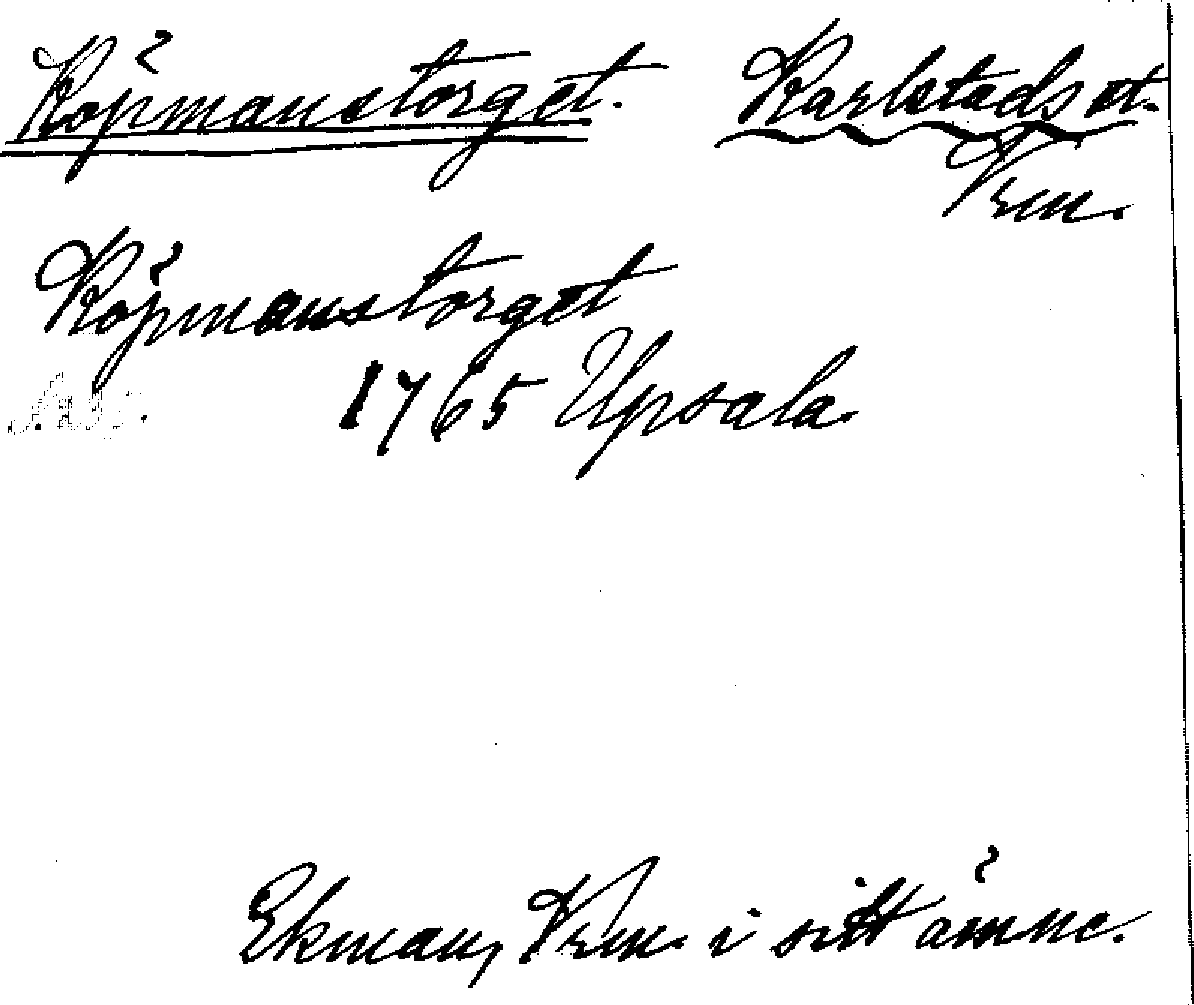 Köpmanstorget. Karlstads st.
Vrm.
Köpmanstorget
1765 Upsala.
Ekman, Vrm. i sitt ämne.